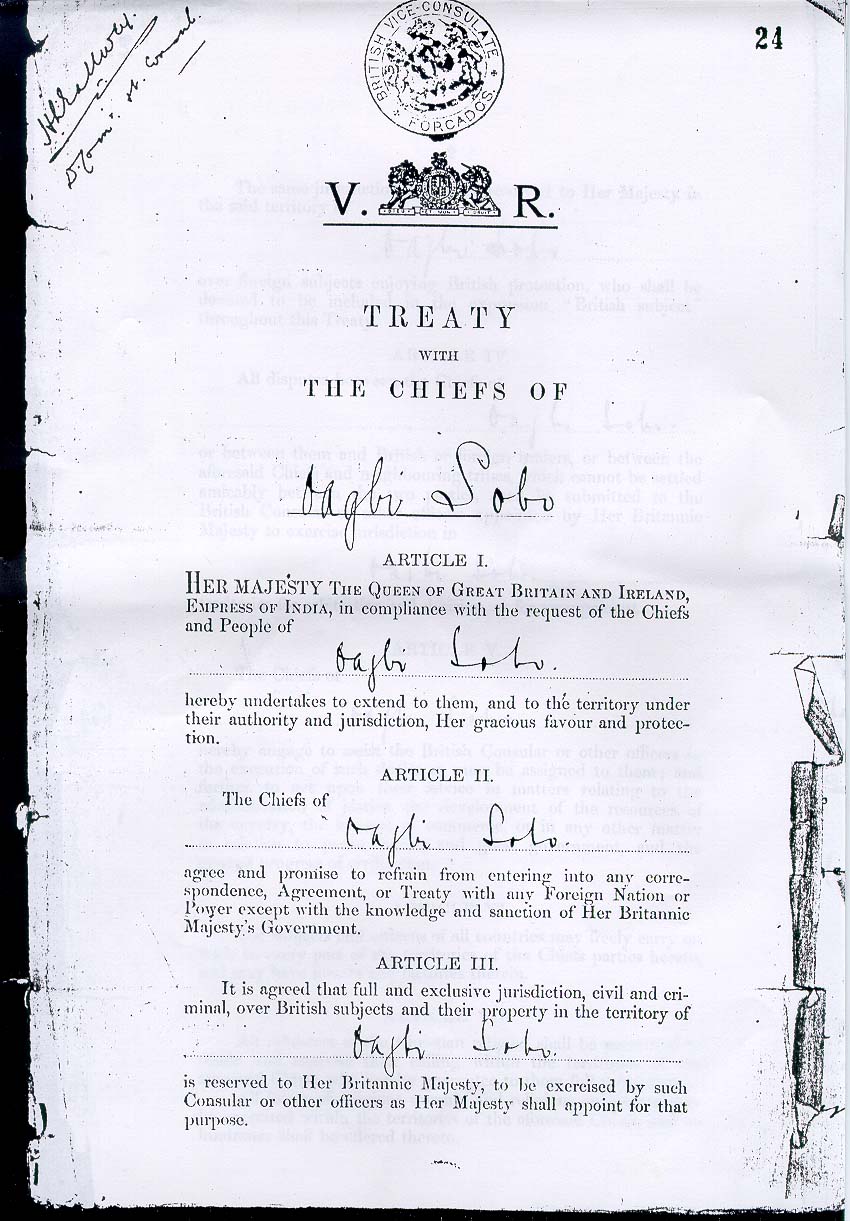 24
BRITISH VICE-CONSULATE
FORCADOS.
V. R.
TREATY
WITH
THE CHIEFS OF
Oagbi Sobo
ARTICLE I.
HER MAJESTY THE QUEEN OF GREAT BRITAIN AND IRELAND,
EMPRESS OF INDIA, in compliance with the request of the Chiefs
and People of
Oagbi Sobo.
hereby undertakes to extend to them, and to the territory under
their authority and jurisdiction, Her gracious favour and protec-
tion.
ARTICLE II.
The Chiefs of
Oagbi Sobo.
agree and promise to refrain from entering into any corre-
spondence, Agreement, or Treaty with any Foreign Nation or
Power except with the knowledge and sanction of Her Britannic
Majesty's Government.
ARTICLE III.
It is agreed that full and exclusive jurisdiction, civil and cri-
minal, over British subjects and their property in the territory of
Oagbi Sobo.
is reserved to Her Britannic Majesty, to be exercised by such
Consular or other officers as Her Majesty shall appoint for that
purpose.